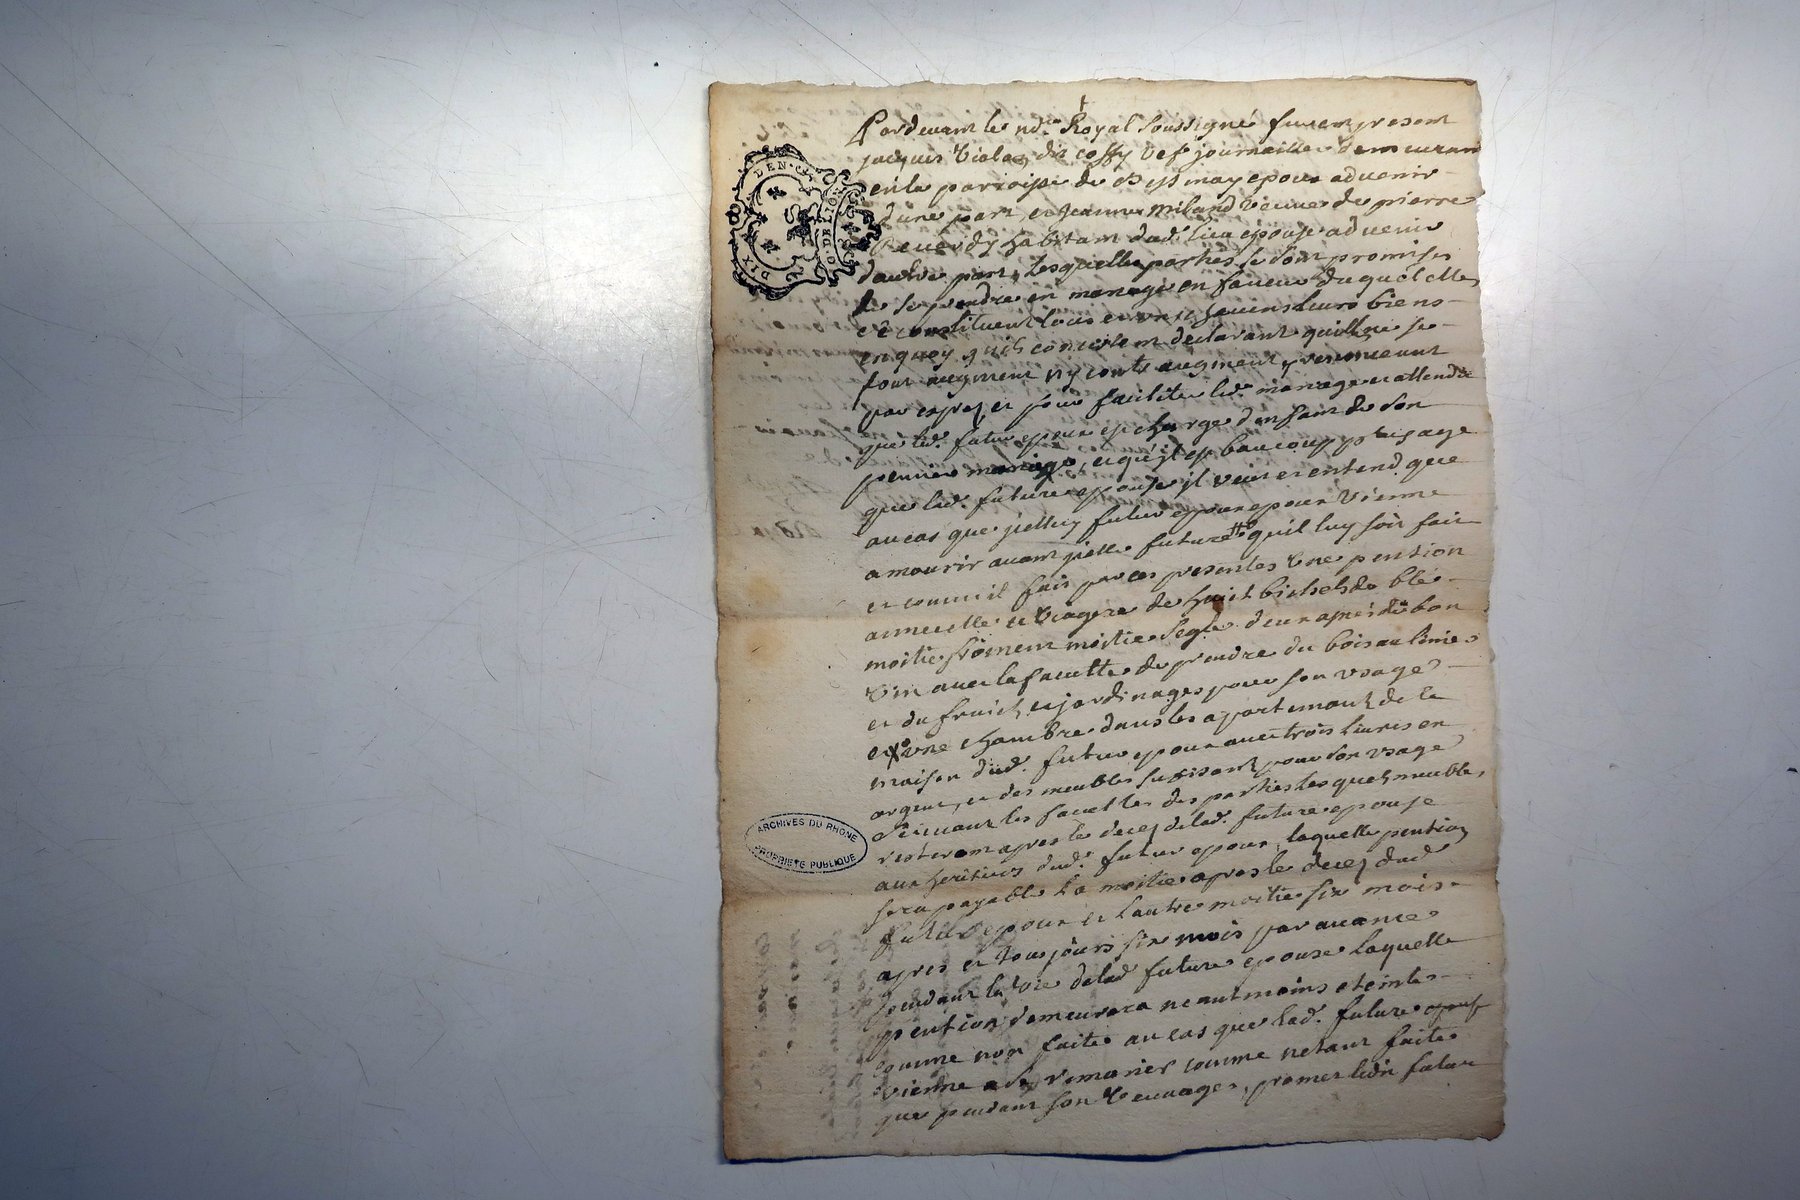 Pardevant le no.re Royal soussigné furent present
jacques viala dit coffy vef journaillier demeurant
en la parroisse de Bessenay epoux advenir
d'une part, et jeanne milland veuve de pierre
Reverdy habitant dud. lieu epouse advenir
dautre part, Lesquelles parties se sont promises
de se prendre en mariage en faveur duquel elles
ce constituent tous et un chacuns leurs biens
en quoy qu'ils consistent declarant quil ne se
font augment ny contr augment y renonceant
par exprez et pour faciliter led. mariage et attendu
que led. futur epoux est chargé d'enfant de son
premier mariage, et qu'il est beaucoup plus agé
que lad. future epouse il veut et entend que
au cas que jcelluy futur epoux vienne
a mourir avant jcelle future qu'il luy soit fait
et comme il fait par ces presentes une pention
annuelle et viagere de huit bichets de blé
moitie froment moitie segle deux anées de bon
vin avec la faculté de prendre du bois au
et du fruict et jardinages pour son usage
et une chambre dans les apartemant de la
maison dud. futur epoux avec trois livres en
argent, et des meubles suffisant pour son usage
suivant les facultes des parties lesquels meubles
resteront apres le decez de lad. future epouse
aux heritiers dud. futur epoux, laquelle pention
sera payable La moitie apres le decez dud.
futur epoux et lautre moitie six mois
apres et tousjours six mois par avance
pendant la vie de lad. future epouse laquelle
pention demeurera neantmoins eteinte
comme non faite au cas que lad. future epouse
vienne a se remarier comme netant faite
que pendant son veuvage, promet ledit futur
DIX DEN.
DE LION
ARCHIVES DU RHONE
PROPRIETE PUBLIQUE